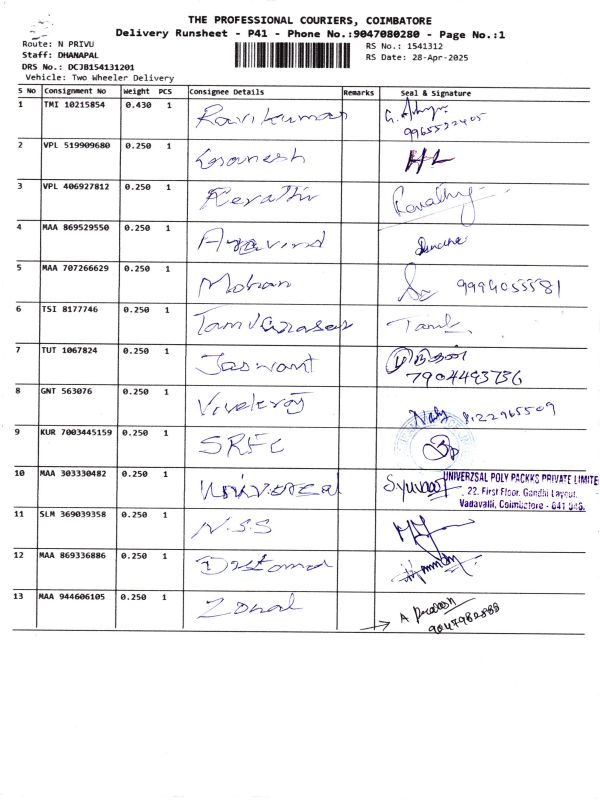 THE PROFESSIONAL COURIERS, COIMBATORE
Delivery Runsheet - P41 - Phone No.:9047080280 - Page No.:1
Route: N PRIVU
RS No.: 1541312
Staff: DHANAPAL
RS Date: 28-Apr-2025
DRS No.: DCJB154131201
Vehicle: Two Wheeler Delivery
S No Consignment No Weight PCS Consignee Details Remarks Seal & Signature
1 TMI 10215854 0.430 1 Ravikumar
2 VPL 519909680 0.250 1 Ganesh
3 VPL 406927812 0.250 1 Revathi Revathy
4 MAA 869529550 0.250 1 Aravind
5 MAA 707266629 0.250 1 Mohan 9994055581
6 TSI 8177746 0.250 1 Tamilarasan Tamil
7 TUT 1067824 0.250 1 Jaswant
7904493736
8 GNT 563076 0.250 1 Vivekraj 8122965509
9 KUR 7003445159 0.250 1 SRFC
10 MAA 303330482 0.250 1 Universal
UNIVERZSAL POLY PACKKS PRIVATE LIMITE
22, First Floor, Gandhi Layout,
Vadavalli, Coimbatore - 641 046.
11 SLM 369039358 0.250 1 N.S.S
12 MAA 869336886 0.250 1
13 MAA 944606105 0.250 1 Zonal A Prakash
9047982888